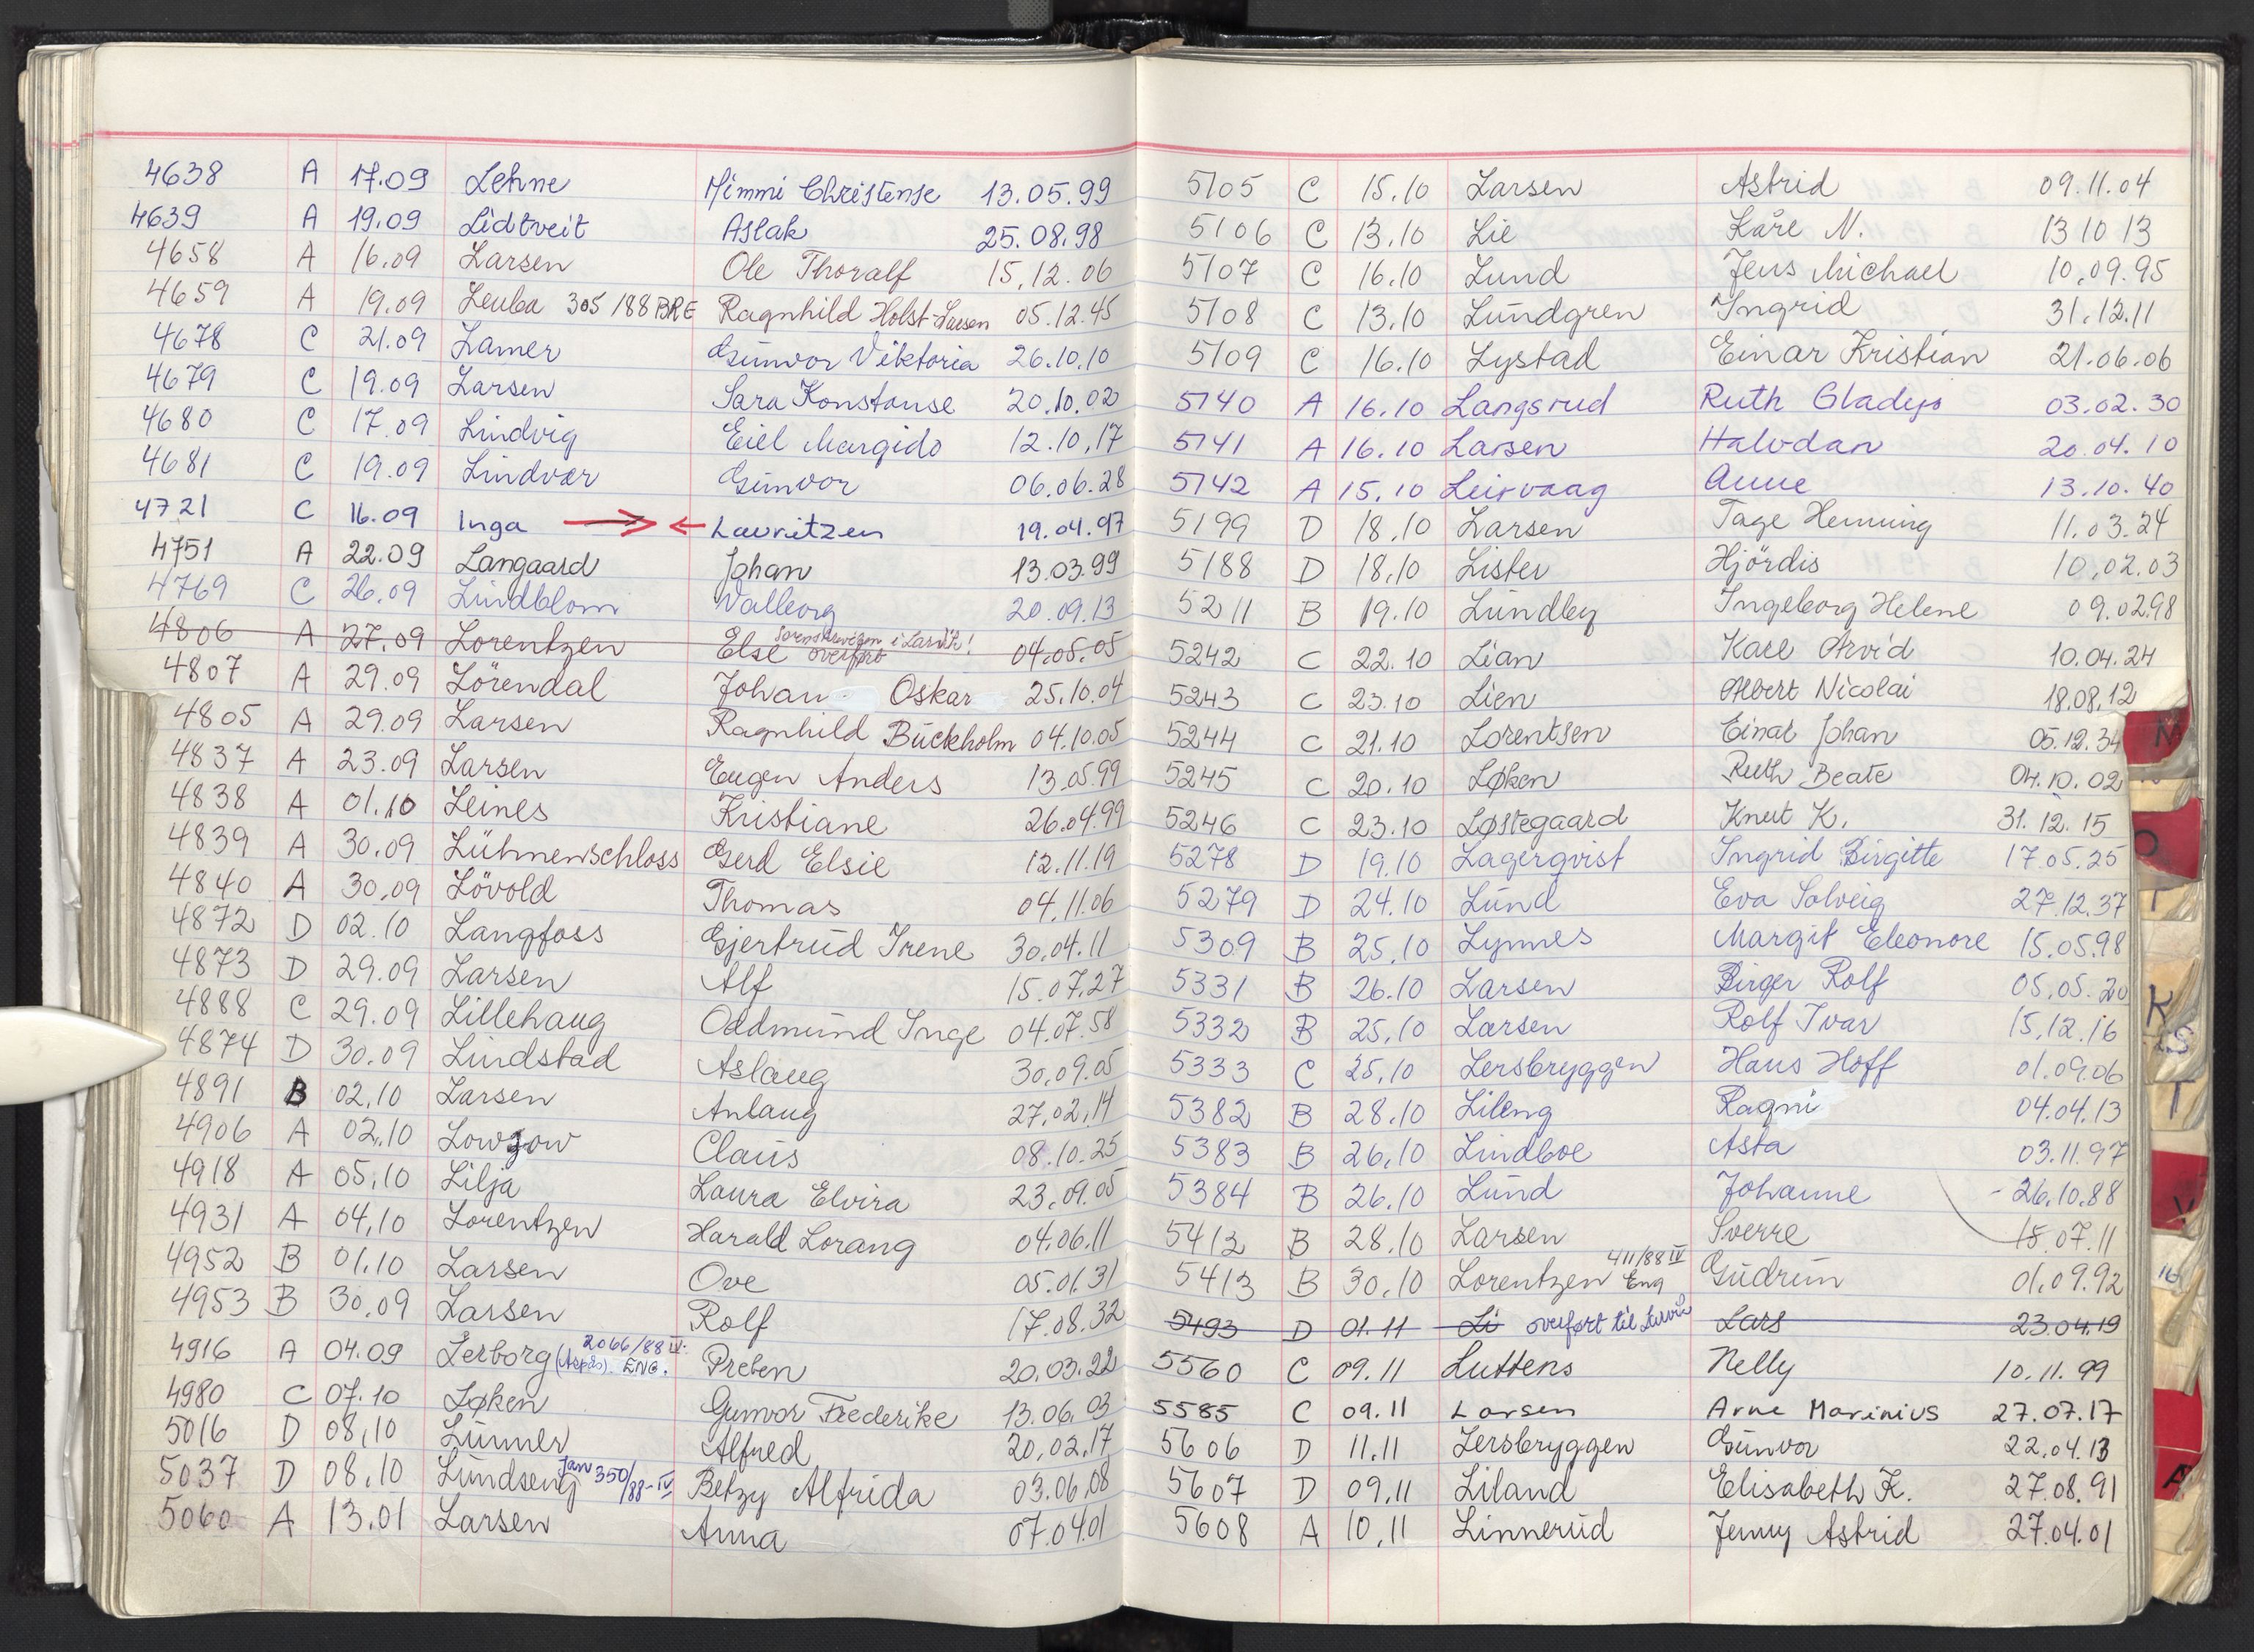 4638 A 17.09 Lehne Mimmi Christense 13.05.99
4639 A 19.09 Lidtveit Aslak 25.08.98
4658 A 16.09 Larsen Ole Thoralf 15.12.06
4659 A 19.09 Leuba 305/88 BRE Ragnhild Holst-Larsen 05.12.45
4678 C 21.09 Lamer Gunvor Viktoria 26.10.10
4679 C 19.09 Larsen Sara Konstanse 20.10.02
4680 C 17.09 Lindvig Eiel Margido 12.10.17
4681 C 19.09 Lindvær Gunvor 06.06.28
4721 C 16.09 Inga Lauritzen 19.04.97
4751 A 22.09 Langaard Johan 13.03.99
4769 C 26.09 Lindblom Valborg 20.09.13
4806 A 27.09 Lorentzen Else overført i Larvik! 04.05.05
4807 A 29.09 Lörendal Johan Oskar 25.10.04
4805 A 29.09 Larsen Ragnhild Buckholm 04.10.05
4837 A 23.09 Larsen Eugen Anders 13.05.99
4838 A 01.10 Leines Kristiane 26.04.99
4839 A 30.09 Lühmenschloss Gerd Elsie 12.11.19
4840 A 30.09 Lövold Thomas 04.11.06
4872 D 02.10 Langfoss Gjertrud Irene 30.04.11
4873 D 29.09 Larsen Alf 15.07.27
4888 C 29.09 Lillehaug Oddmund Inge 04.07.58
4874 D 30.09 Lindstad Aslaug 30.09.05
4891 B 02.10 Larsen Anlaug 27.02.14
4906 A 02.10 Lowzow Claus 08.10.25
4918 A 05.10 Lilja Laura Elvira 23.09.05
4931 A 04.10 Lorentzen Harald Lorang 04.06.11
4952 B 01.10 Larsen Ove 05.01.31
4953 B 30.09 Larsen Rolf 17.08.32
4916 A 04.09 Lerborg 2066/88 IV. ENG. Preben 20.03.22
4980 C 07.10 Løken Gunvor Frederike 13.06.03
5016 D 08.10 Lunner Alfred 20.02.17
5037 D 08.10 Lundseng Jan 350/88-IV Betzy Alfrida 03.06.08
5060 A 13.01 Larsen Anna 07.04.01
5105 C 15.10 Larsen Astrid 09.11.04
5106 C 13.10 Lie Kåre N. 13 10 13
5107 C 16.10 Lund Jens Michael 10.09.95
5108 C 13.10 Lundgren Ingrid 31.12.11
5109 C 16.10 Lystad Einar Kristian 21.06.06
5140 A 16.10 Langsrud Ruth Gladys 03.02.30
5141 A 16.10 Larsen Halvdan 20.04.10
5142 A 15.10 Leirvaag Anne 13.10.40
5199 D 18.10 Larsen Tage Henning 11.03.24
5188 D 18.10 Lister Hjördis 10.02.03
5211 B 19.10 Lundby Ingeborg Helene 09.02.98
5242 C 22.10 Lian Kare Arvid 10.04.24
5243 C 23.10 Lien Albert Nicolai 18.08.12
5244 C 21.10 Lorentsen Einar Johan 05.12.34
5245 C 20.10 Løken Ruth Beate 04.10.02
5246 C 23.10 Løstegaard Knut K. 31.12.15
5278 D 19.10 Lagerqvist Ingrid Birgitte 17.05.25
5279 D 24.10 Lund Eva Solveig 27.12.37
5309 B 25.10 Lynnes Margit Eleonore 15.05.98
5331 B 26.10 Larsen Birger Rolf 05.05.20
5332 B 25.10 Larsen Rolf Ivar 15.12.16
5333 C 25.10 Lersbryggen Hans Hoff 01.09.06
5382 B 28.10 Lileng Ragni 04.04.13
5383 B 26.10 Lindboe Asta 03.11.97
5384 B 26.10 Lund Johanne - 26.10.88
5412 B 28.10 Larsen Sverre 15.07.11
5413 B 30.10 Lorentzen 411/88 IV Eng Gudrun 01.09.92
5493 D 01.11 Li overført til Larvik Lars 23.04.19
5560 C 09.11 Luttens Nelly 10.11.99
5585 C 09.11 Larsen Arne Marinius 27.07.17
5606 D 11.11 Lersbryggen Gunvor 22.04.13
5607 D 09.11 Liland Elisabeth K. 27.08.91
5608 A 10.11 Linnerud Jenny Astrid 27.04.01
M
O
T
K
S
T
V
16
A